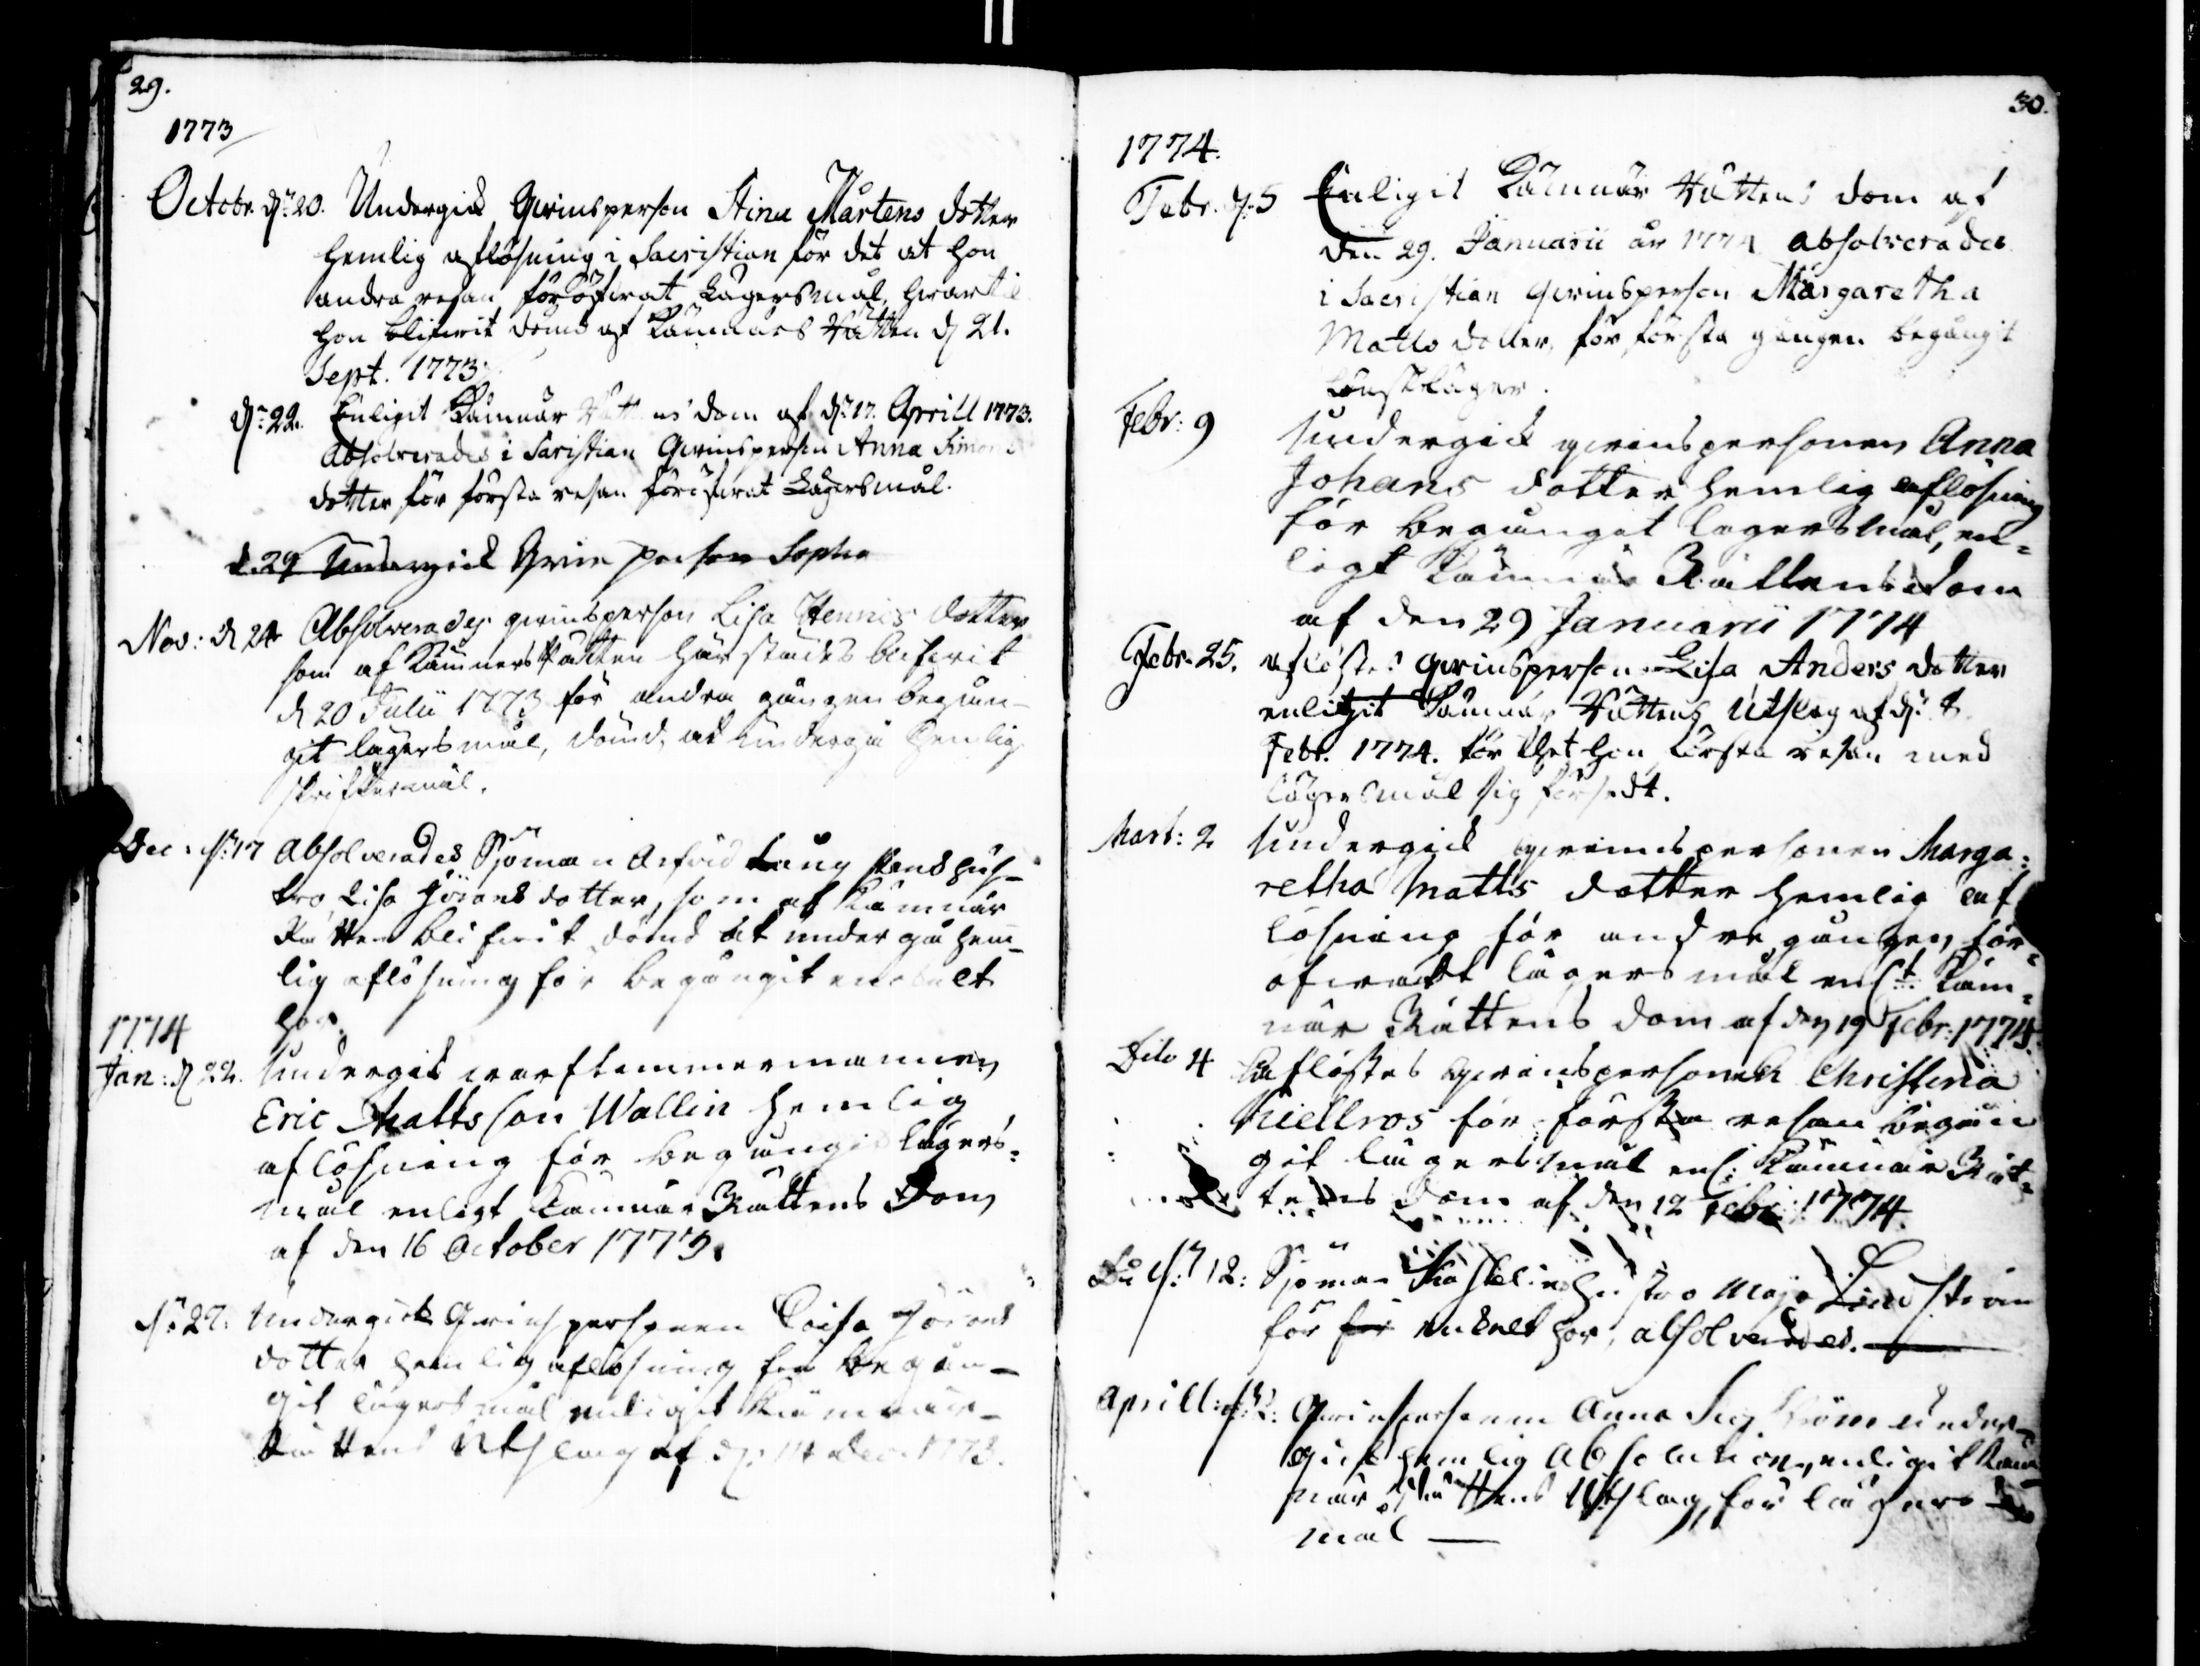 29.
1773
Octobr. d: 20. Undergick Qvinsperson Stina Mårtens dotter
hemlig aflösning i Sacristian för det at hon
andra resan föröfwat Lägersmål, hwartil
hon blifwit dömd af Kämnärs Rätten d 21.
Sept. 1773.
d: 22. Enligit Kämnär Rättens dom af d: 17. Aprill 1773.
Absolverades i Sacristian Qvinsperson Anna Simons
dotter för första resan föröfwat Lägersmål.
d. 29 Undergick Qvins person Sophia
Nov: d 24 Absolverades qvinsperson Lisa Hennics dotter
som af Kämners Rätten härstädes blifwit
d 20 Julii 1773 för andra gången begån-
git lägersmål, dömd, at undergå hemlig
skriftermål.
Dec: d: 17 Absolverades Sjöman Arfvid Lång hus-
tro, Lisa Görans dotter, som af Kämnär
Rätten blifwit dömd at undergå hem-
lig aflösning för begångit enkelt
hor.
1774
Jan: d 22. Undergick warftimmermannen
Eric Mattsson Wallin hemlig
aflösning för begångit lägers-
mål enligt Kämnär Rättens Dom
af den 16 October 1773.
d: 27: Undergick Qvinspersonen Caisa Görans
dotter hemlig aflösning för begån-
git lägersmål enligit Kämnärs-
Rättens Utslag af d: 14 Dec. 1773.
30.
1774.
Febr. d: 5 Enligit Kämnär Rättens dom af
den 29. Januarii år 1774 absolverades
i Sacristian Qvinsperson Margaretha
Matts dotter, för första gången begångit
Lönskläger.
Febr: 9 Undergick qvinspersonen Anna
Johans dotter hemlig aflösning
för begångit lägersmål, en-
ligt Kämnär Rättens dom
af den 29 Januarii 1774
Febr. 25. aflöstes Qvinsperson Lisa Anders dotter
enligit Kämnär Rättens Utslag af d: 8
Febr. 1774. för thet hon första resan med
lägersmål sig försedt.
Mart: 2 Undergick qvinnspersonen Marga:
retha Matts dotter hemlig af
lösning för andre gången för-
öfwadt lägersmål enl:t Käm-
när Rättens dom af den 19 Febr: 1774.
Dito 4 Aflöstes Qvinspersonen Christina
Kiellros för första resan begån
git lägersmål enl: Kämnär Rät-
tens dom af den 12 Febr: 1774.
d: 12: Sjöman hustro Maja Lindström
för för enkelt hor, absolverades.
Aprill: d: 2: Qvinspersonen Anna under-
gick hemlig Absolution, enligit Käm-
närs Rättens Utslag, för lägers-
mål